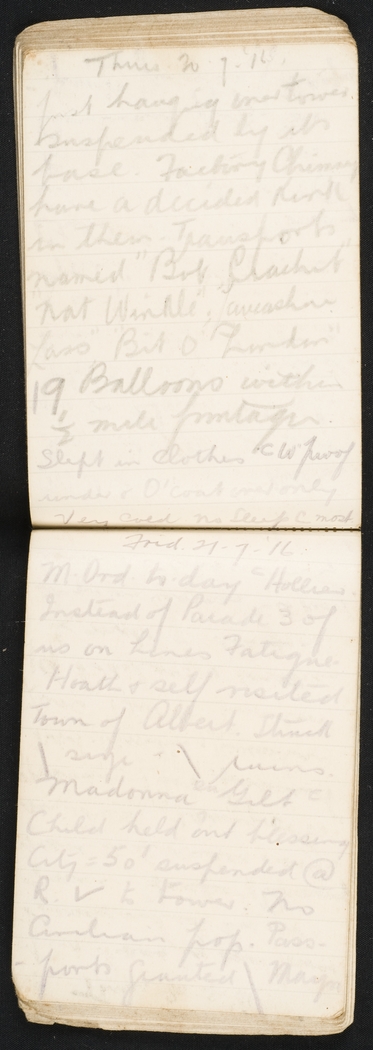 Thurs 20.7.16.
just hanging over tower.
Suspended by its
base. Factory Chimney
have a decided kink
in them. Transports
named "Bob Crachit"
"Nat Winkle", "Lancashire
Lass" "Bit O' London"
19 Balloons within
½ mile frontage.
Slept in clothes c W proof
under & O'coat over only
Very cold no sleep c most
Frid. 21-7-16.
M. Ord to-day
Instead of Parade 3 of
us on Lines Fatigue.
Heath & self visited
Town of Albert. Struck
\ size - \ ruins.
Madonna Gilt c
Child held out blessing
City = 50' suspended @
R. to tower. No
Civilian pop. Pass-
ports granted \